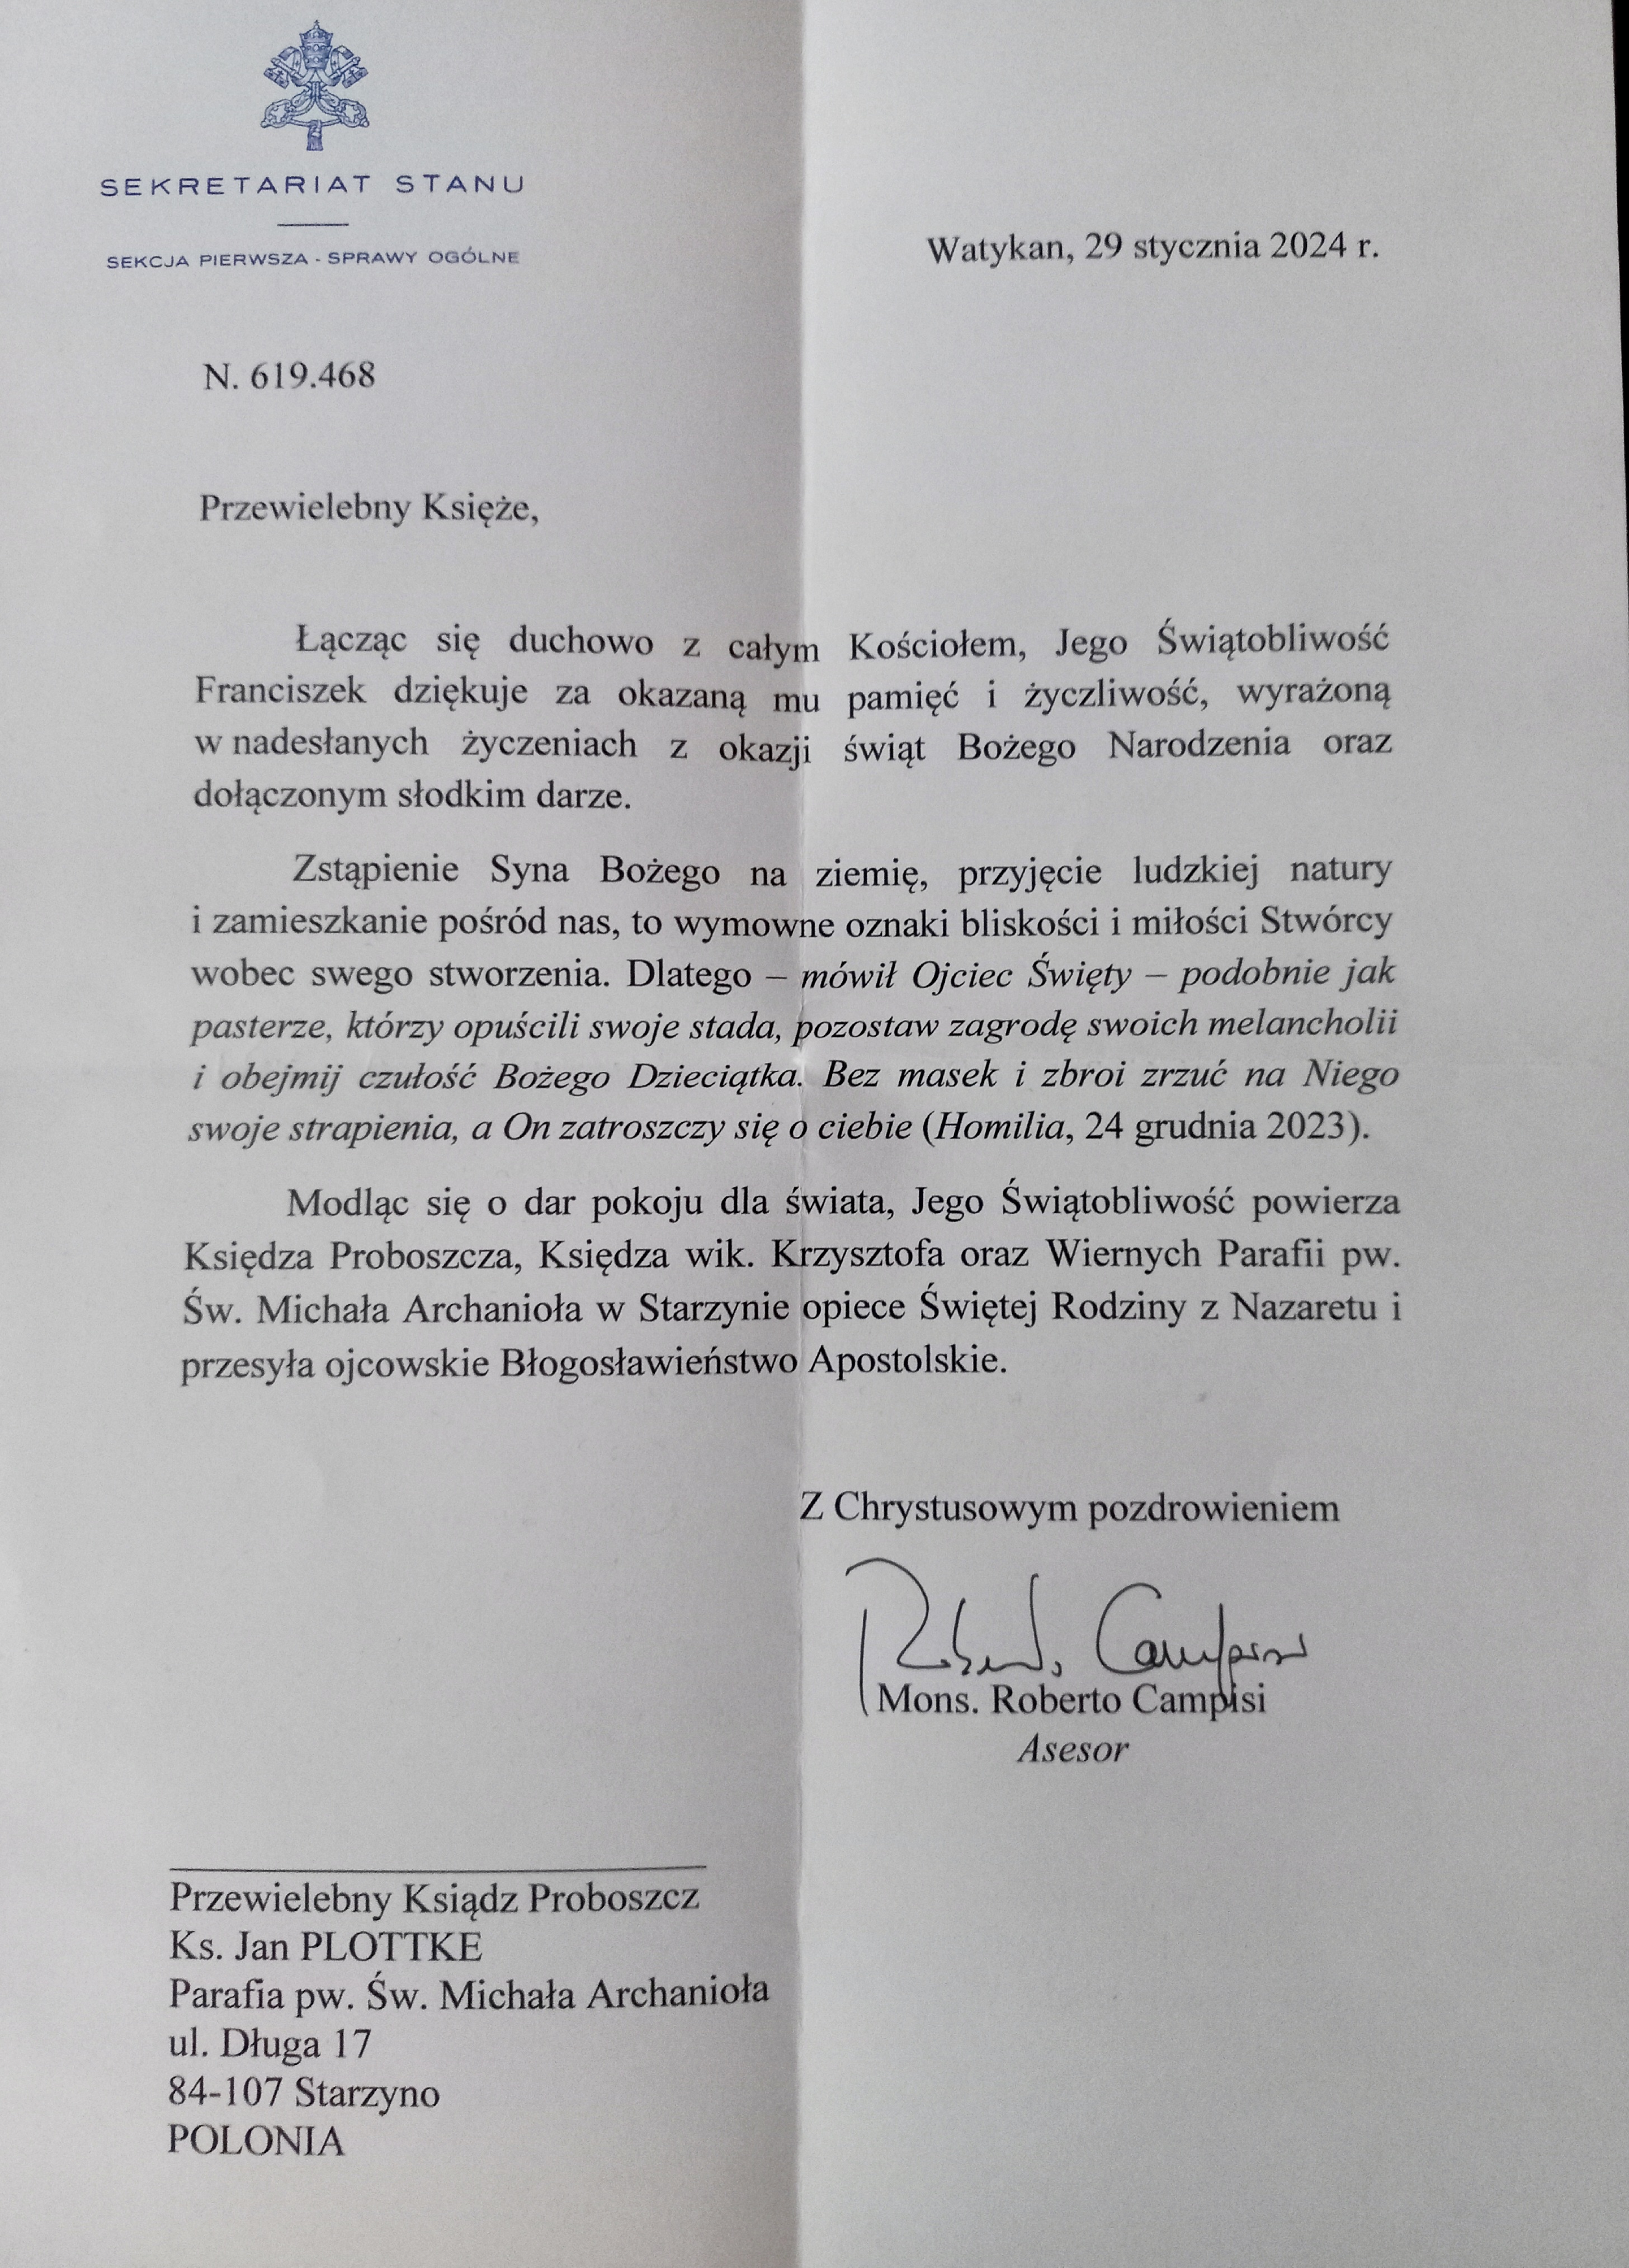 SEKRETARIAT STANU
SEKCJA PIERWSZA - SPRAWY OGÓLNE
Watykan, 29 stycznia 2024 r.
N. 619.468
Przewielebny Księże,
Łącząc się duchowo z całym Kościołem, Jego Świątobliwość
Franciszek dziękuje za okazaną mu pamięć i życzliwość, wyrażoną
w nadesłanych życzeniach z okazji świąt Bożego Narodzenia oraz
dołączonym słodkim darze.
Zstąpienie Syna Bożego na ziemię, przyjęcie ludzkiej natury
i zamieszkanie pośród nas, to wymowne oznaki bliskości i miłości Stwórcy
wobec swego stworzenia. Dlatego – mówił Ojciec Święty – podobnie jak
pasterze, którzy opuścili swoje stada, pozostaw zagrodę swoich melancholii
i obejmij czułość Bożego Dzieciątka. Bez masek i zbroi zrzuć na Niego
swoje strapienia, a On zatroszczy się o ciebie (Homilia, 24 grudnia 2023).
Modląc się o dar pokoju dla świata, Jego Świątobliwość powierza
Księdza Proboszcza, Księdza wik. Krzysztofa oraz Wiernych Parafii pw.
Św. Michała Archanioła w Starzynie opiece Świętej Rodziny z Nazaretu i
przesyła ojcowskie Błogosławieństwo Apostolskie.
Z Chrystusowym pozdrowieniem
Roberto Campisi
Mons. Roberto Campisi
Asesor
Przewielebny Ksiądz Proboszcz
Ks. Jan PLOTTKE
Parafia pw. Św. Michała Archanioła
ul. Długa 17
84-107 Starzyno
POLONIA